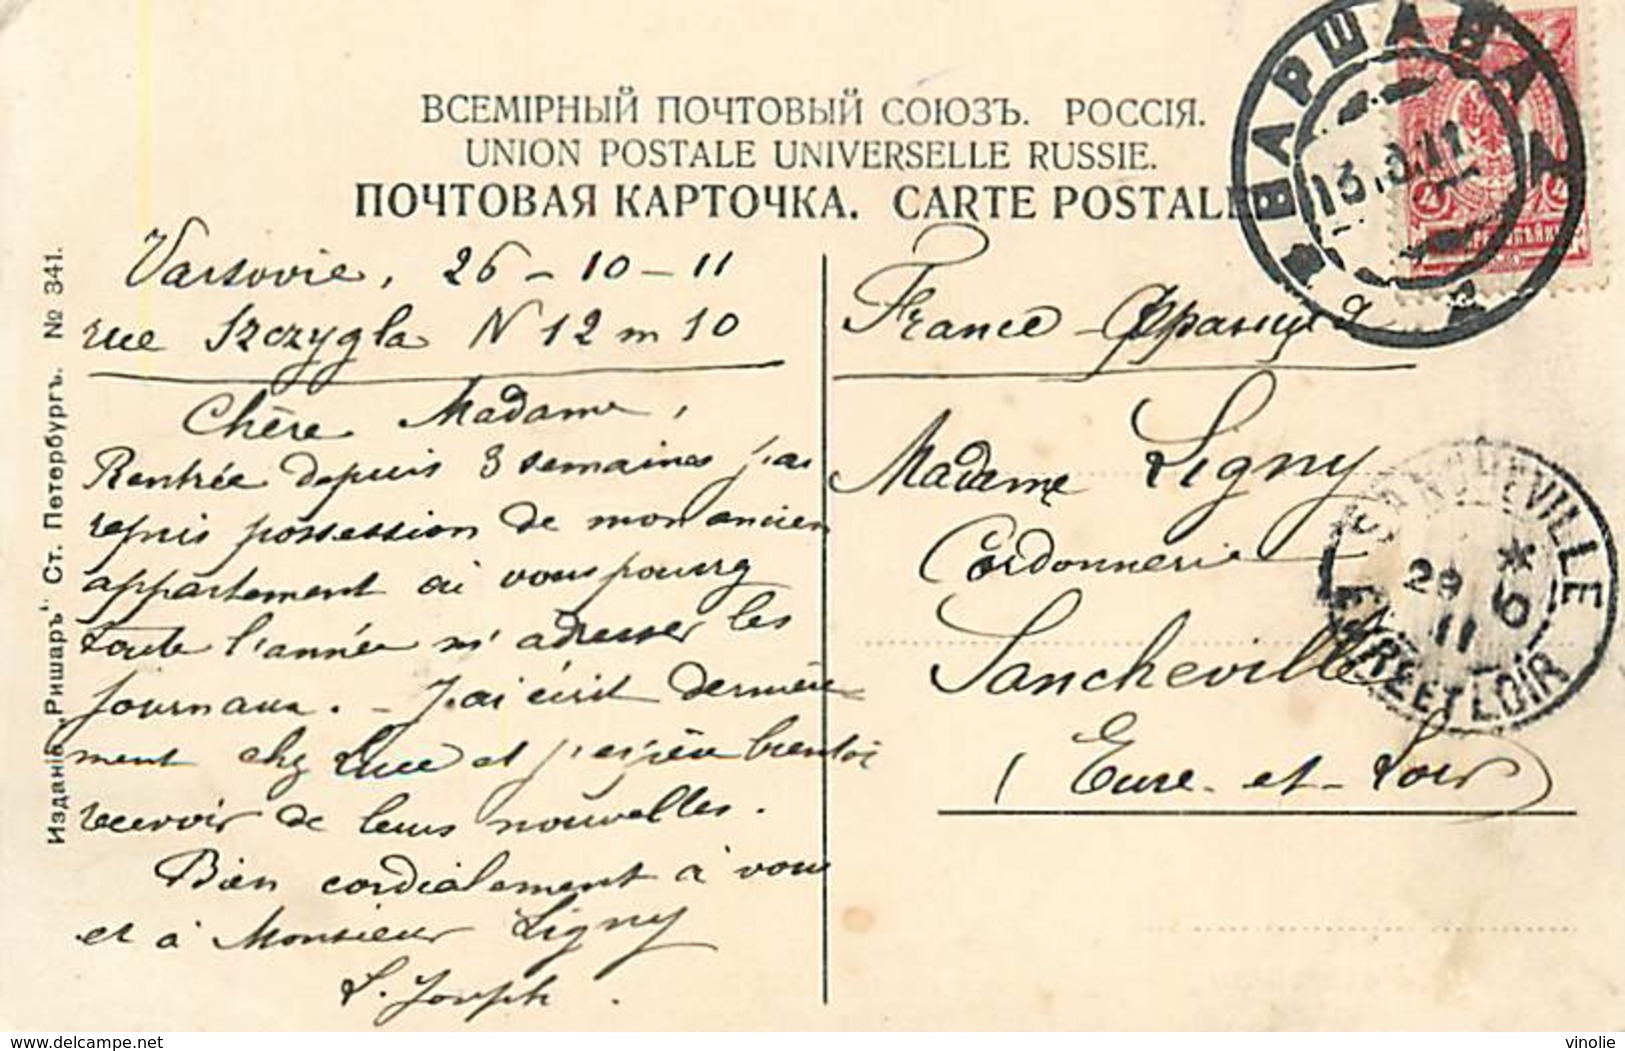 ВСЕМІРНЫЙ ПОЧТОВЫЙ СОЮЗЪ. РОССІЯ.
UNION POSTALE UNIVERSELLE RUSSIE.
ПОЧТОВАЯ КАРТОЧКА. CARTE POSTALE
ВАРШАВА
13.3.11
Varsovie, 26-10-11
rue Szczygla N 12 m 10
Chère Madame,
Rentrée depuis 3 semaines j'ai
repris possession de mon ancien
appartement où vous pourrez
toute l'année m'adresser les
journaux. - J'ai écrit dernière
ment chez Luce et j'espère bientôt
recevoir de leurs nouvelles.
Bien cordialement à vous
et à Monsieur Ligny
L. Joseph.
France - Франція
Madame Ligny
Cordonnerie
Sancheville
(Eure-et-Loir)
SANCHEVILLE
*
29
11
EURE ET LOIR
Изданіе „Ришаръ“ Ст. Петербургъ. № 341.
delcampe.net
vinolie